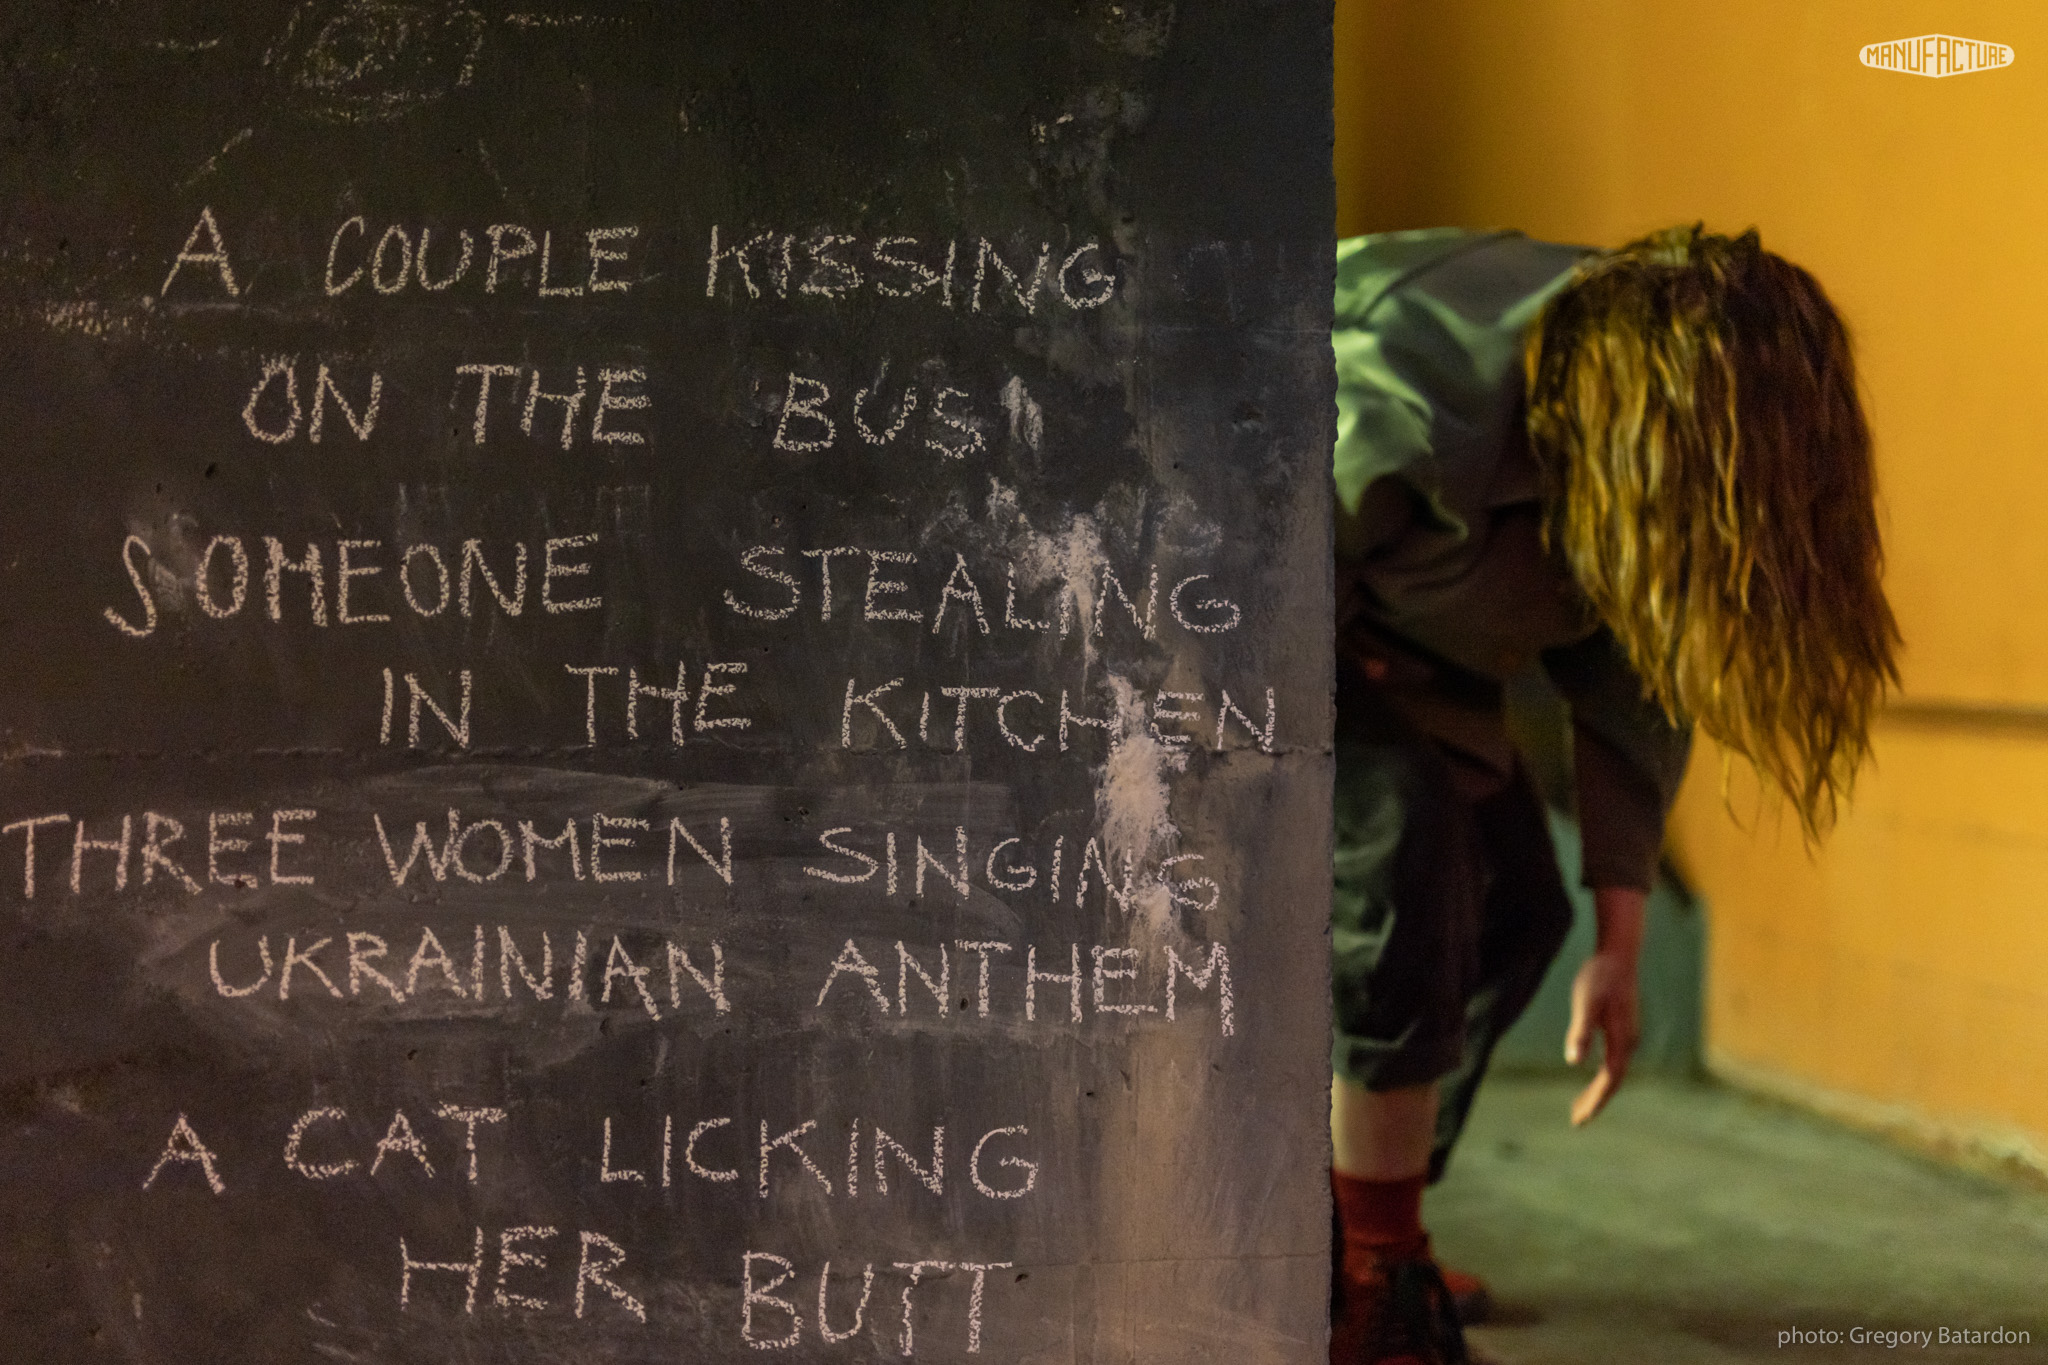 MANUFACTURE
A COUPLE KISSING
ON THE BUS
SOMEONE STEALING
IN THE KITCHEN
THREE WOMEN SINGING
UKRAINIAN ANTHEM
A CAT LICKING
HER BUTT
photo: Gregory Batardon